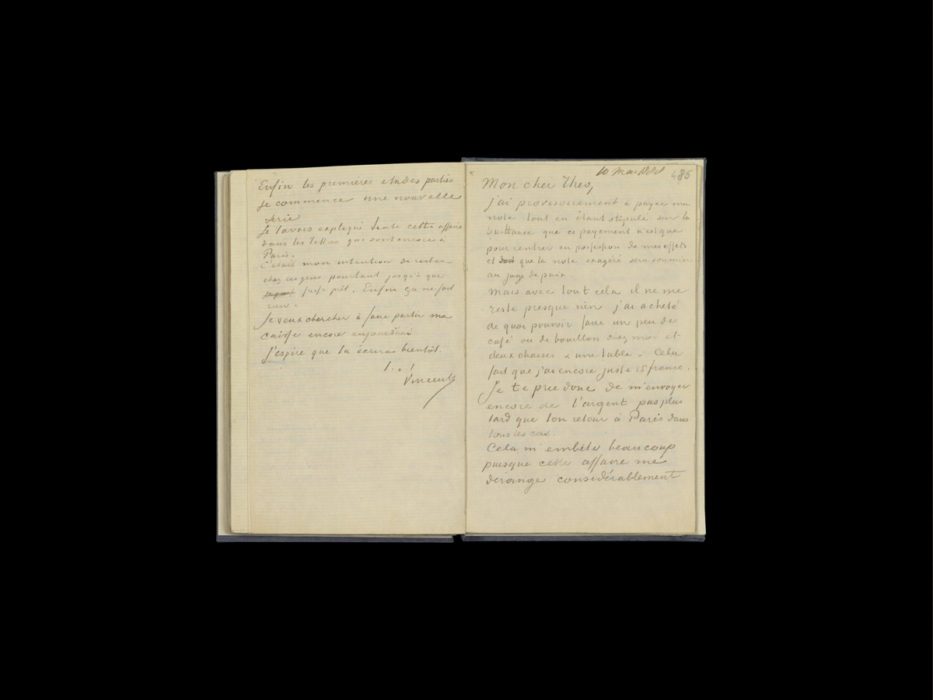 Enfin les premieres etudes parties
je commence une nouvelle
serie
Je t'avais expliqué toute cette affaire
dans les lettres qui sont envoyées à
Paris.
C'etait mon intention de rester
chez ces gens pourtant jusqu'à que
fusse prêt. Enfin ça ne fait
rien.
Je veux chercher à faire partir ma
caisse encore aujourdhui
J'espère que tu écriras bientôt.
t. à t.
Vincent
10 mai 1888 486
Mon cher Theo,
j'ai provisoirement à payer ma
note tout en étant stipulé sur la
quittance que ce payement n'est que
pour rentrer en possession de mes effets
et que la note exagéré sera soumise
au juge de paix.
Mais avec tout cela il ne me
reste presque rien j'ai acheté
de quoi pouvoir faire un peu de
café ou de bouillon chez moi et
deux chaises & une table. Cela
fait que j'ai encore juste 15 francs.
Je te prie donc de m'envoyer
encore de l'argent pas plus
tard que ton retour à Paris dans
tous les cas.
Cela m'embête beaucoup
puisque cette affaire me
derange considérablement